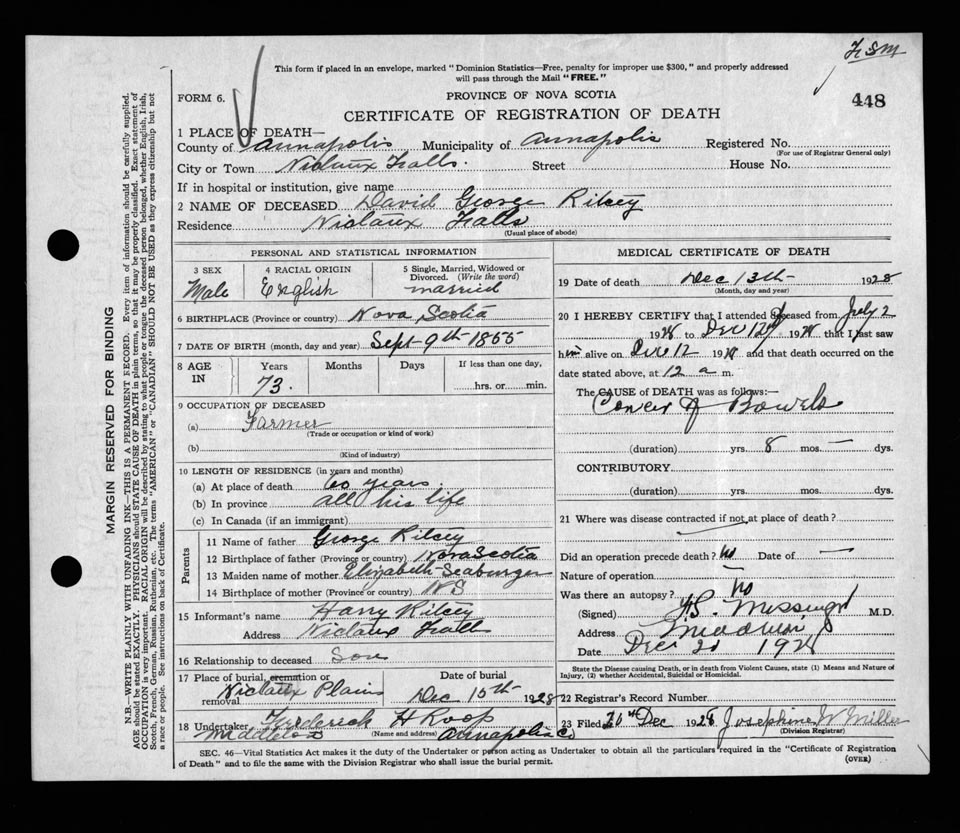 F S M
This form if placed in an envelope, marked "Dominion Statistics—Free, penalty for improper use $300," and properly addressed
will pass through the Mail "FREE."
FORM 6.
PROVINCE OF NOVA SCOTIA
448
CERTIFICATE OF REGISTRATION OF DEATH
1 PLACE OF DEATH—
County of Annapolis Municipality of Annapolis Registered No.
(For use of Registrar General only)
City or Town Nictaux Falls. Street House No.
If in hospital or institution, give name
2 NAME OF DECEASED David George Ritcey
Residence Nictaux Falls
(Usual place of abode)
PERSONAL AND STATISTICAL INFORMATION
3 SEX 4 RACIAL ORIGIN 5 Single, Married, Widowed or
Divorced. (Write the word)
Male English married
6 BIRTHPLACE (Province or country) Nova Scotia
7 DATE OF BIRTH (month, day and year) Sept 9th 1855
8 AGE IN Years Months Days If less than one day,
73. hrs. or min.
9 OCCUPATION OF DECEASED
(a) Farmer
(Trade or occupation or kind of work)
(b)
(Kind of industry)
10 LENGTH OF RESIDENCE (in years and months)
(a) At place of death 60 years.
(b) In province all his life
(c) In Canada (if an immigrant)
Parents
11 Name of father George Ritcey
12 Birthplace of father (Province or country) Nova Scotia
13 Maiden name of mother Elizabeth Seaburger
14 Birthplace of mother (Province or country) N S
15 Informant's name Harry Ritcey
Address Nictaux Falls
16 Relationship to deceased Son
17 Place of burial, cremation or Date of burial
removal Nictaux Plains Dec 15th 1928
18 Undertaker Frederick H Roop
Middleton (Name and address) Annapolis Co
MEDICAL CERTIFICATE OF DEATH
19 Date of death Dec 13th 1928
(Month, day and year)
20 I HEREBY CERTIFY that I attended deceased from July 2
1928 to Dec 12 1928 that I last saw
him alive on Dec 12 1928 and that death occurred on the
date stated above, at 12 a m.
The CAUSE of DEATH was as follows:—
Cancer of Bowels
(duration) yrs. 8 mos. — dys.
CONTRIBUTORY
(duration) yrs. mos. dys.
21 Where was disease contracted if not at place of death?
Did an operation precede death? No Date of —
Nature of operation
Was there an autopsy? No
(Signed) Messenger M.D.
Address Middleton
Date Dec 20 1928
State the Disease causing Death, or in death from Violent Causes, state (1) Means and Nature of
Injury, (2) whether Accidental, Suicidal or Homicidal.
22 Registrar's Record Number
23 Filed 20th Dec 1928 Josephine W Miller
(Division Registrar)
SEC. 46—Vital Statistics Act makes it the duty of the Undertaker or person acting as Undertaker to obtain all the particulars required in the "Certificate of Registration
of Death" and to file the same with the Division Registrar who shall issue the burial permit.
(OVER)
MARGIN RESERVED FOR BINDING
N.B.—WRITE PLAINLY WITH UNFADING INK—THIS IS A PERMANENT RECORD. Every item of information should be carefully supplied.
AGE should be stated EXACTLY. PHYSICIANS should STATE CAUSE OF DEATH in plain terms, so that it may be properly classified. Exact statement of
OCCUPATION is very important. RACIAL ORIGIN will be described by stating to what people or tongue the deceased person belonged, whether English, Irish,
Scotch, French, German, Russian, Ruthenian, etc. The terms "AMERICAN" or "CANADIAN" SHOULD NOT BE USED as they express citizenship but not
a race or people. See instructions on back of Certificate.